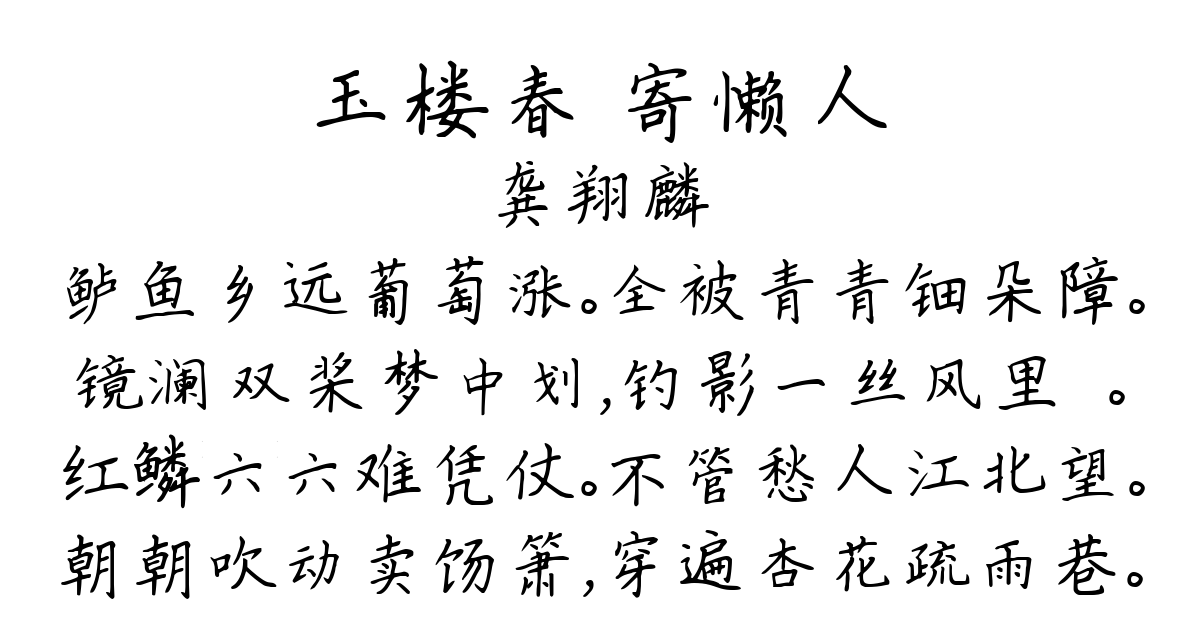 玉楼春 寄懒人
龚翔麟
鲈鱼乡远葡萄涨。全被青青钿朵障。
镜澜双桨梦中划,钓影一丝风里 。
红鳞六六难凭仗。不管愁人江北望。
朝朝吹动卖饧箫,穿遍杏花疏雨巷。